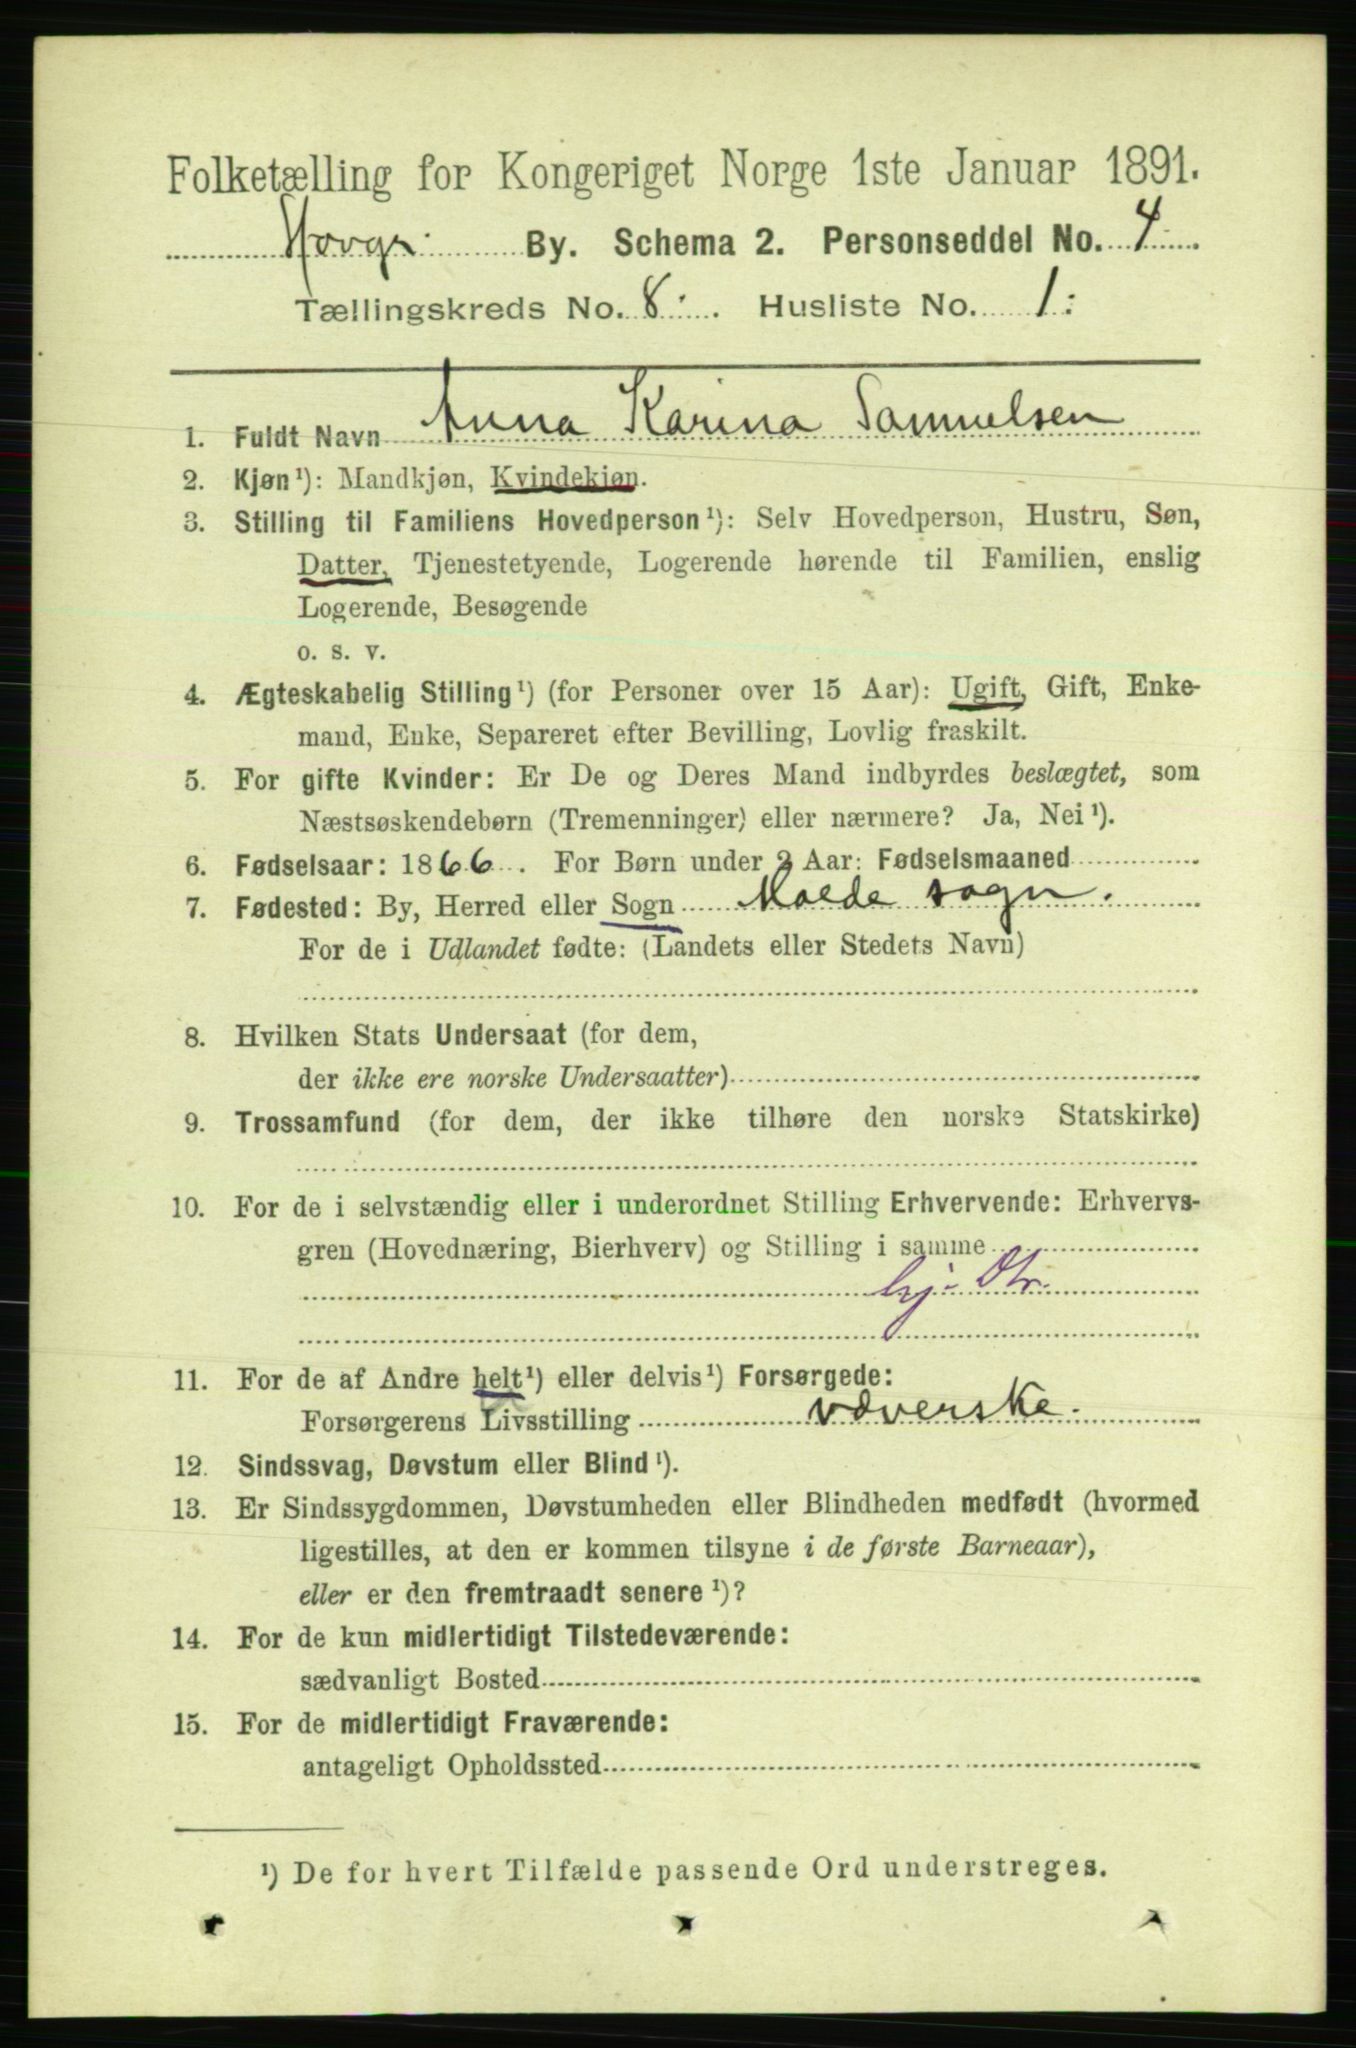 Folketælling for Kongeriget Norge 1ste Januar 1891.
By. Schema 2. Personseddel No. 4
Tællingskreds No. 8. Husliste No. 1.
1. Fuldt Navn Anna Karina Samuelsen
2. Kjøn¹): Mandkjøn, Kvindekjøn.
3. Stilling til Familiens Hovedperson¹): Selv Hovedperson, Hustru, Søn,
Datter, Tjenestetyende, Logerende hørende til Familien, enslig
Logerende, Besøgende
o. s. v.
4. Ægteskabelig Stilling¹) (for Personer over 15 Aar): Ugift, Gift, Enke-
mand, Enke, Separeret efter Bevilling, Lovlig fraskilt.
5. For gifte Kvinder: Er De og Deres Mand indbyrdes beslægtet, som
Næstsøskendebørn (Tremenninger) eller nærmere? Ja, Nei¹).
6. Fødselsaar: 1866. For Børn under 2 Aar: Fødselsmaaned
7. Fødested: By, Herred eller Sogn Molde sogn.
For de i Udlandet fødte: (Landets eller Stedets Navn)
8. Hvilken Stats Undersaat (for dem,
der ikke ere norske Undersaatter)
9. Trossamfund (for dem, der ikke tilhøre den norske Statskirke)
10. For de i selvstændig eller i underordnet Stilling Erhvervende: Erhvervs-
gren (Hovednæring, Bierhverv) og Stilling i samme
hj. Dtr.
11. For de af Andre helt¹) eller delvis¹) Forsørgede:
Forsørgerens Livsstilling væverske.
12. Sindssvag, Døvstum eller Blind¹).
13. Er Sindssygdommen, Døvstumheden eller Blindheden medfødt (hvormed
ligestilles, at den er kommen tilsyne i de første Barneaar),
eller er den fremtraadt senere¹)?
14. For de kun midlertidigt Tilstedeværende:
sædvanligt Bosted
15. For de midlertidigt Fraværende:
antageligt Opholdssted
¹) De for hvert Tilfælde passende Ord understreges.